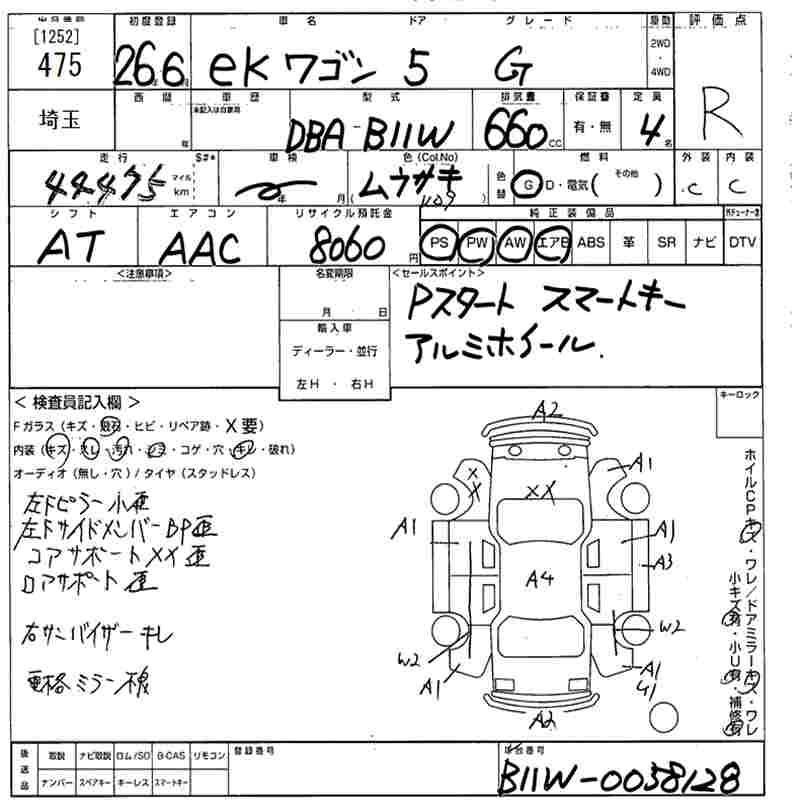 [1252]
475
初度登録 車名 ドア グレード 駆動 評価点
26 6 ekワゴン 5 G 2WD・4WD R
埼玉
車歴 型式 排気量 保証書 定員
未記入は自家用
年 DBA-B11W 660 CC 有・無 4 名
走行 S#* 車検 色(Col.No) 燃料 外装 内装
44475 マイル km 年 月 ( ムラサキ ) 色替 G・D・電気( その他 ) C C
シフト エアコン リサイクル預託金 純正装備品
AT AAC 8060 円 PS PW AW エアB ABS 革 SR ナビ DTV
<注意事項> 名変期限 <セールスポイント>
月 日 Pスタート スマートキー
輸入車 アルミホイール.
ディーラー・並行
左H・右H
<検査員記入欄> キーロック
Fガラス(キズ・飛石・ヒビ・リペア跡・X要)
内装(キズ・スレ・汚れ・シミ・コゲ・穴・キレ・破れ)
オーディオ(無し・穴)/タイヤ(スタッドレス)
左Fピラー小歪
左FサイドメンバーBP歪
コアサポートXX歪
ロアサポート歪
右サンバイザーキレ
電格ミラー不良
A2
X X XX A1
A1 A1
A3
A4
W2 W2
A1 A1
A2
ホイルCPキズ・ワレ/ドアミラーキズ・ワレ
小キズ有・小U有・補修有
後送品 取説 ナビ取説 ロム/SD B-CAS リモコン 登録番号 車台番号
ナンバー スペアキー キーレス スマートキー B11W-0058128